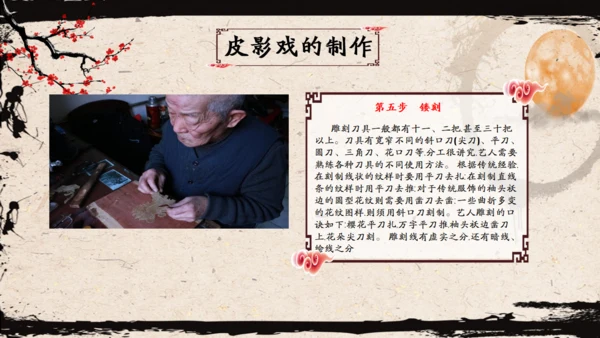 皮影戏的制作
第五步 镂刻
雕刻刀具一般都有十一、二把,甚至三十把
以上。刀具有宽窄不同的斜口刀(尖刀)、平刀、
圆刀、三角刀、花口刀等,分工很讲究,艺人需要
熟练各种刀具的不同使用方法。 根据传统经验
在刻制线状的纹样时要用平刀去扎;在刻制直线
条的纹样时用平刀去推;对于传统服饰的袖头袄
边的圆型花纹则需要用凿刀去凿;一些曲折多变
的花纹图样,则须用斜口刀刻制。艺人雕刻的口
诀如下:樱花平刀扎,万字平刀推,袖头袄边凿刀
上,花朵尖刀刻。 雕刻线有虚实之分,还有暗线、
绘线之分